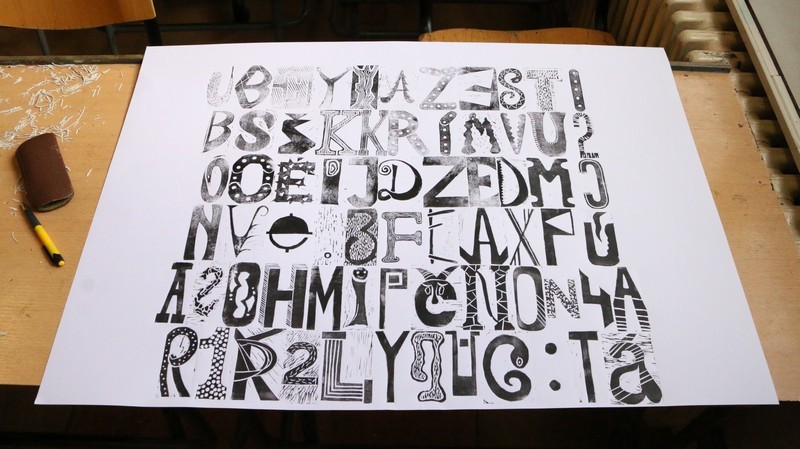 UBHYIAZEST!
BSSKKRÍMVU?
OOÉIJDZEDMO
NV.BFEAXPÚ
A?OHMiPeNON4A
R1K2LYnUG:Ta